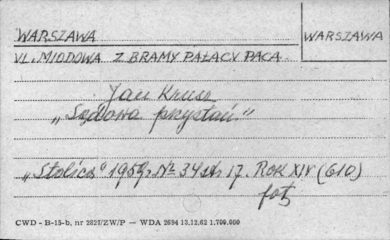 WARSZAWA
WARSZAWA
UL. MIODOWA Z BRAMY PAŁACU PACA
Jan Krusz
„Sądowa przystań."
„Stolica" 1959r. Nr 34 str 17. ROK XIV (610)
fot
CWD - B-15-b, nr 2827/ZW/P — WDA 2694 13.12.62 1.700.000